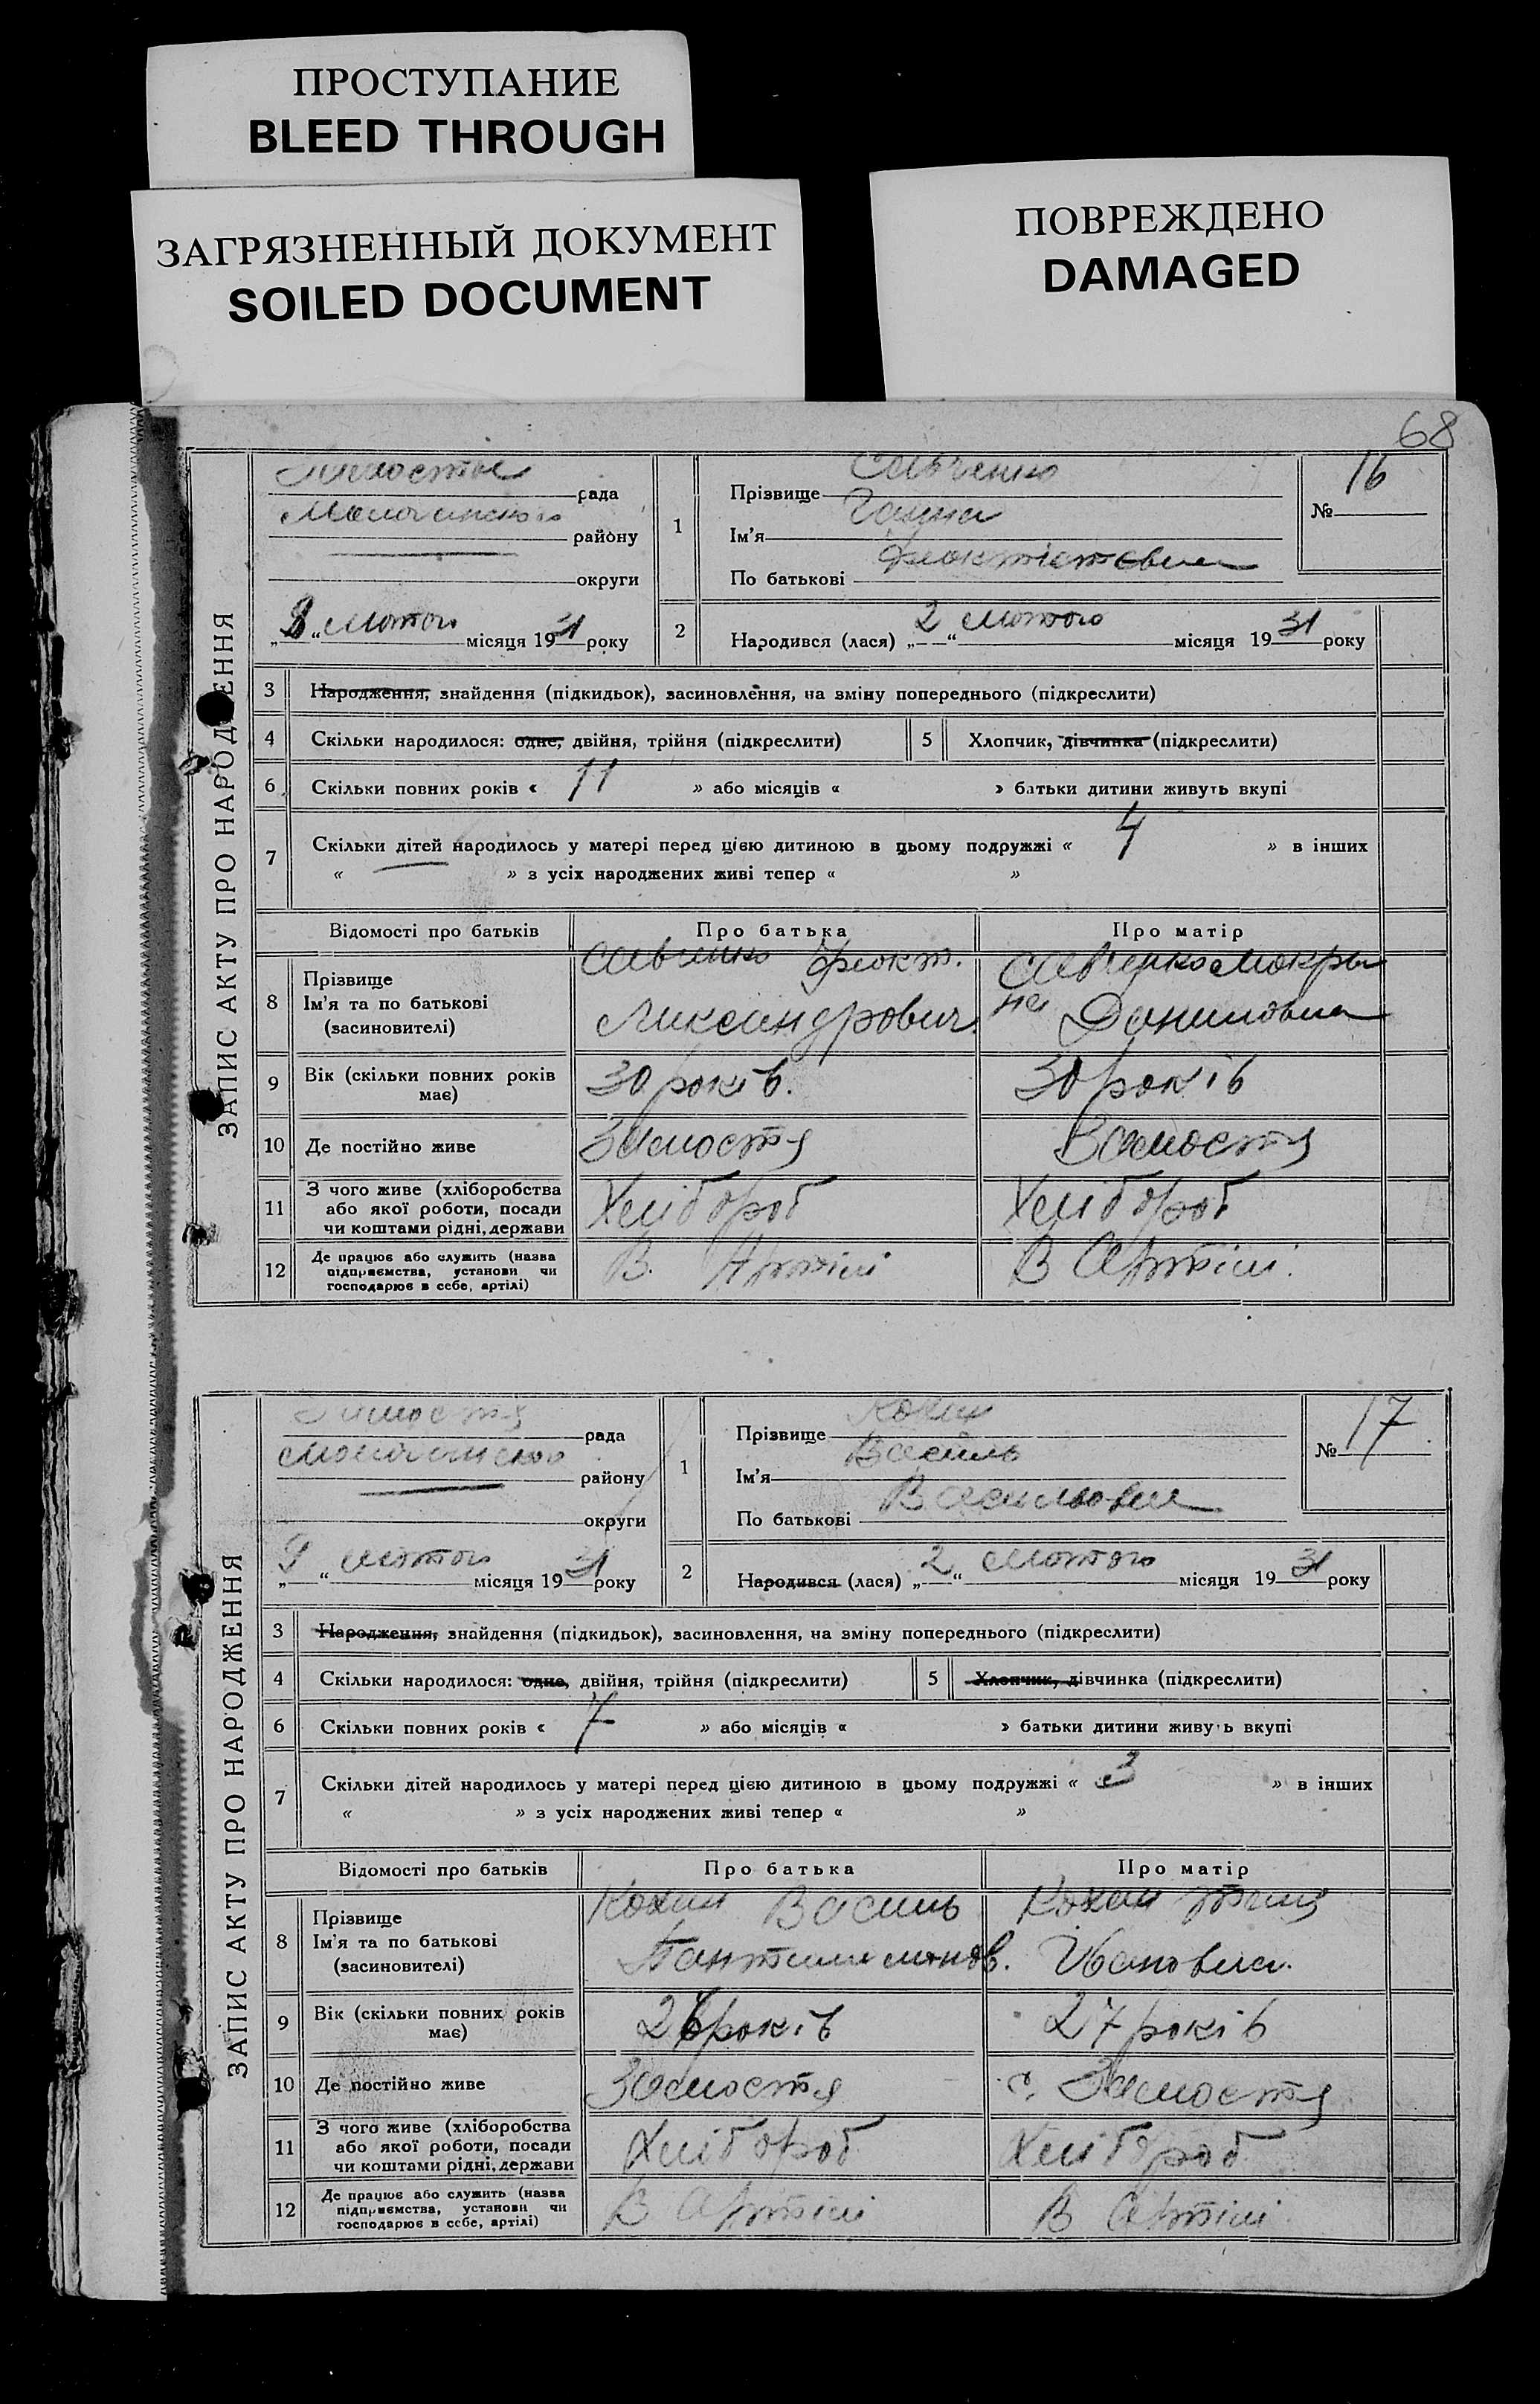 ПРОСТУПАНИЕ
BLEED THROUGH
ЗАГРЯЗНЕННЫЙ ДОКУМЕНТ
SOILED DOCUMENT
ПОВРЕЖДЕНО
DAMAGED
68
ЗАПИС АКТУ ПРО НАРОДЖЕННЯ
рада
району
округи
„8“ лютого місяця 1931 року
1
Прізвище Савченко
Ім'я Ганна
По батькові
№ 16
2
Народився (лася) „2“ лютого місяця 1931 року
3 Народження, знайдення (підкидьок), засиновлення, на зміну попереднього (підкреслити)
4 Скільки народилося: одне, двійня, трійня (підкреслити)
5 Хлопчик, дівчинка (підкреслити)
6 Скільки повних років « 11 » або місяців « » батьки дитини живуть вкупі
7 Скільки дітей народилось у матері перед цією дитиною в цьому подружжі « 4 » в інших
« — » з усіх народжених живі тепер « »
Відомості про батьків Про батька Про матір
8 Прізвище
Ім'я та по батькові
(засиновителі)
Савченко Феокт.
Ликсандрович
Савченко Мокры
на Даниловна
9 Вік (скільки повних років
має)
30 років. 30 років
10 Де постійно живе Замостя Замостя
11 З чого живе (хліборобства
або якої роботи, посади
чи коштами рідні, держави
Хлібороб Хлібороб
12 Де працює або служить (назва
підприємства, установи чи
господарює в себе, артілі)
В Артілі В Артілі.
ЗАПИС АКТУ ПРО НАРОДЖЕННЯ
Замостя рада
району
округи
„9“ лютого місяця 1931 року
1
Прізвище Кохан
Ім'я Василь
По батькові
№ 17
2
Народився (лася) „2“ лютого місяця 1931 року
3 Народження, знайдення (підкидьок), засиновлення, на зміну попереднього (підкреслити)
4 Скільки народилося: одне, двійня, трійня (підкреслити)
5 Хлопчик, дівчинка (підкреслити)
6 Скільки повних років « 7 » або місяців « » батьки дитини живуть вкупі
7 Скільки дітей народилось у матері перед цією дитиною в цьому подружжі « 3 » в інших
« » з усіх народжених живі тепер « »
Відомості про батьків Про батька Про матір
8 Прізвище
Ім'я та по батькові
(засиновителі)
Кохан Василь
Пантилимонов.
Кохан
Ивановна.
9 Вік (скільки повних років
має)
років 27 років
10 Де постійно живе Замостя с. Замостя
11 З чого живе (хліборобства
або якої роботи, посади
чи коштами рідні, держави
Хлібороб Хлібороб
12 Де працює або служить (назва
підприємства, установи чи
господарює в себе, артілі)
В Артілі В Артілі